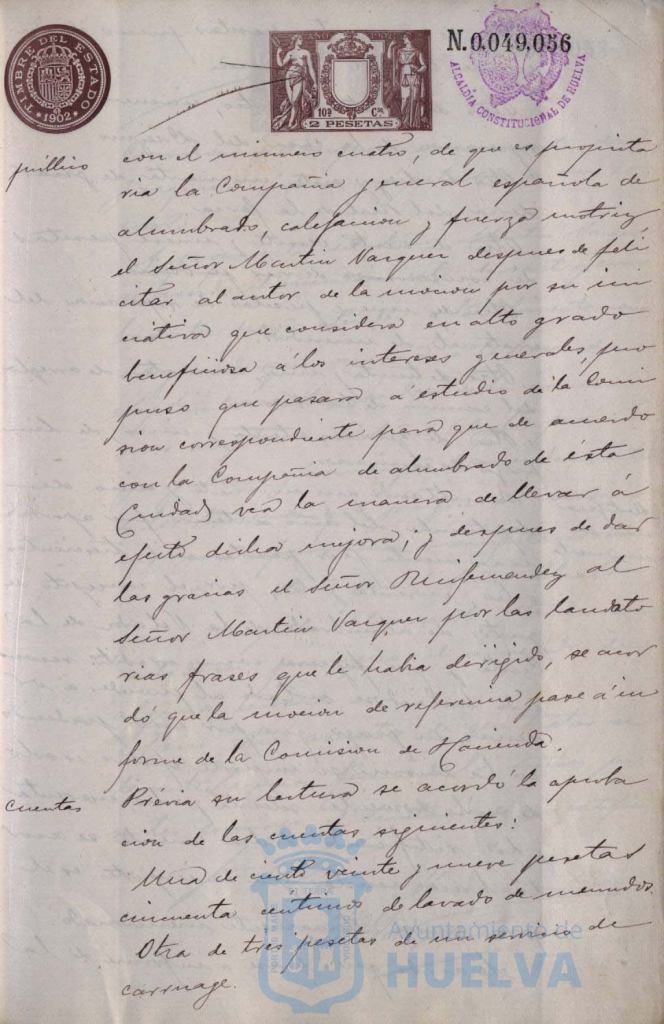 TIMBRE DEL ESTADO
1902
10ª Cª
2 PESETAS
N.0.049.056
ALCALDIA CONSTITUCIONAL DE HUELVA
público
con el número cuatro, de que es propieta
ria la Compañia general española de
alumbrado, calefacion y fuerza motriz,
el Señor Martin Vazquez despues de feli
citar al autor de la mocion por su ini
ciativa que considera en alto grado
beneficiosa á los intereses generales, pro
puso que pasara á estudio de la Comi
sion correspondiente para que de acuerdo
con la Compañia de alumbrado de ésta
Ciudad vea la manera de llevar á
efecto dicha mejora; y despues de dar
las gracias el Señor Ruifernandez al
Señor Martin Vazquez por las laudato
rias frases que le habia dirigido, se acor
dó que la mocion de referencia pase á in
forme de la Comision de Hacienda.
cuentas
Prévia su lectura se acordó la aproba
cion de las cuentas siguientes:
Una de ciento veinte y nueve pesetas
cincuenta centimos de lavado de menudos.
Otra de tres pesetas de un servicio de
carruage.
Ayuntamiento de
HUELVA